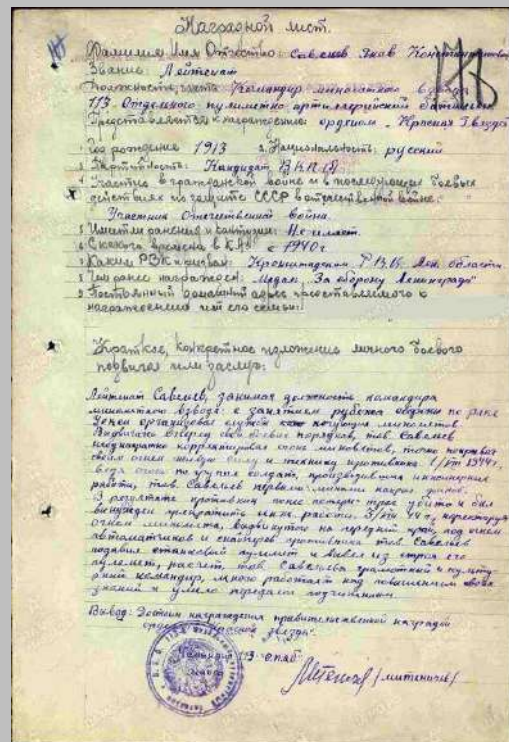 Наградной лист.
Фамилия Имя Отчество Савелев Яков Константинович
Звание Лейтенант
Должность, часть Командир минометного взвода
113 Отдельного пулеметно артиллерийский батальон
Представляется к награждению орденом "Красная Звезда"
1 Год рождение 1913 2. Национальность: русский
3 Партийность: Кандидат ВКП(б)
4 Участие в гражданской войне и в последующих боевых
действиях по защите СССР в отечественной войне:
Участник Отечественной война.
5 Имеет ли ранения и контузии: Не имеет.
6 С какого времени в К.А. с 1940г.
7 Каким РВК призван: Кронштадтский Р.В.К. Лен. области
8 Чем ранее награжден: Медаль "За оборону Ленинграда"
9 Постоянный домашний адрес представляемого к
награждению и его семьи:
Краткое, конкретное изложение личного боевого
подвига или заслуг:
Лейтенант Савелев, занимая должность командира
минометного взвода: с занятием рубежа обороны по реке
организовал
Выдвигаясь вперед свои боевых порядков, тов. Савелев
неоднократно корректировал огонь минометов, точно
своим огнем живую силу и технику противника 1/VIII 1944г.
ведя огонь по группе солдат, производивших инженерные
работы, тов. Савелев первыми минами накрыл
В результате противник понес потери трое убито и был
вынужден прекратить инж. работы. 3/VIII 44 г. корректируя
огнем миномета, выдвинутого на передний край, под огнем
автоматчиков и снайперов противника тов. Савелев
подавил станковый пулемет и вывел из строя его
пулемет, расчет. тов. Савелева грамотной и культур-
рный командир, много работает над повышением своих
знаний и умело передает подчиненным.
Вывод: Достоин награждения правительственной наградой
орденом "Красной звезды".
113 опаб